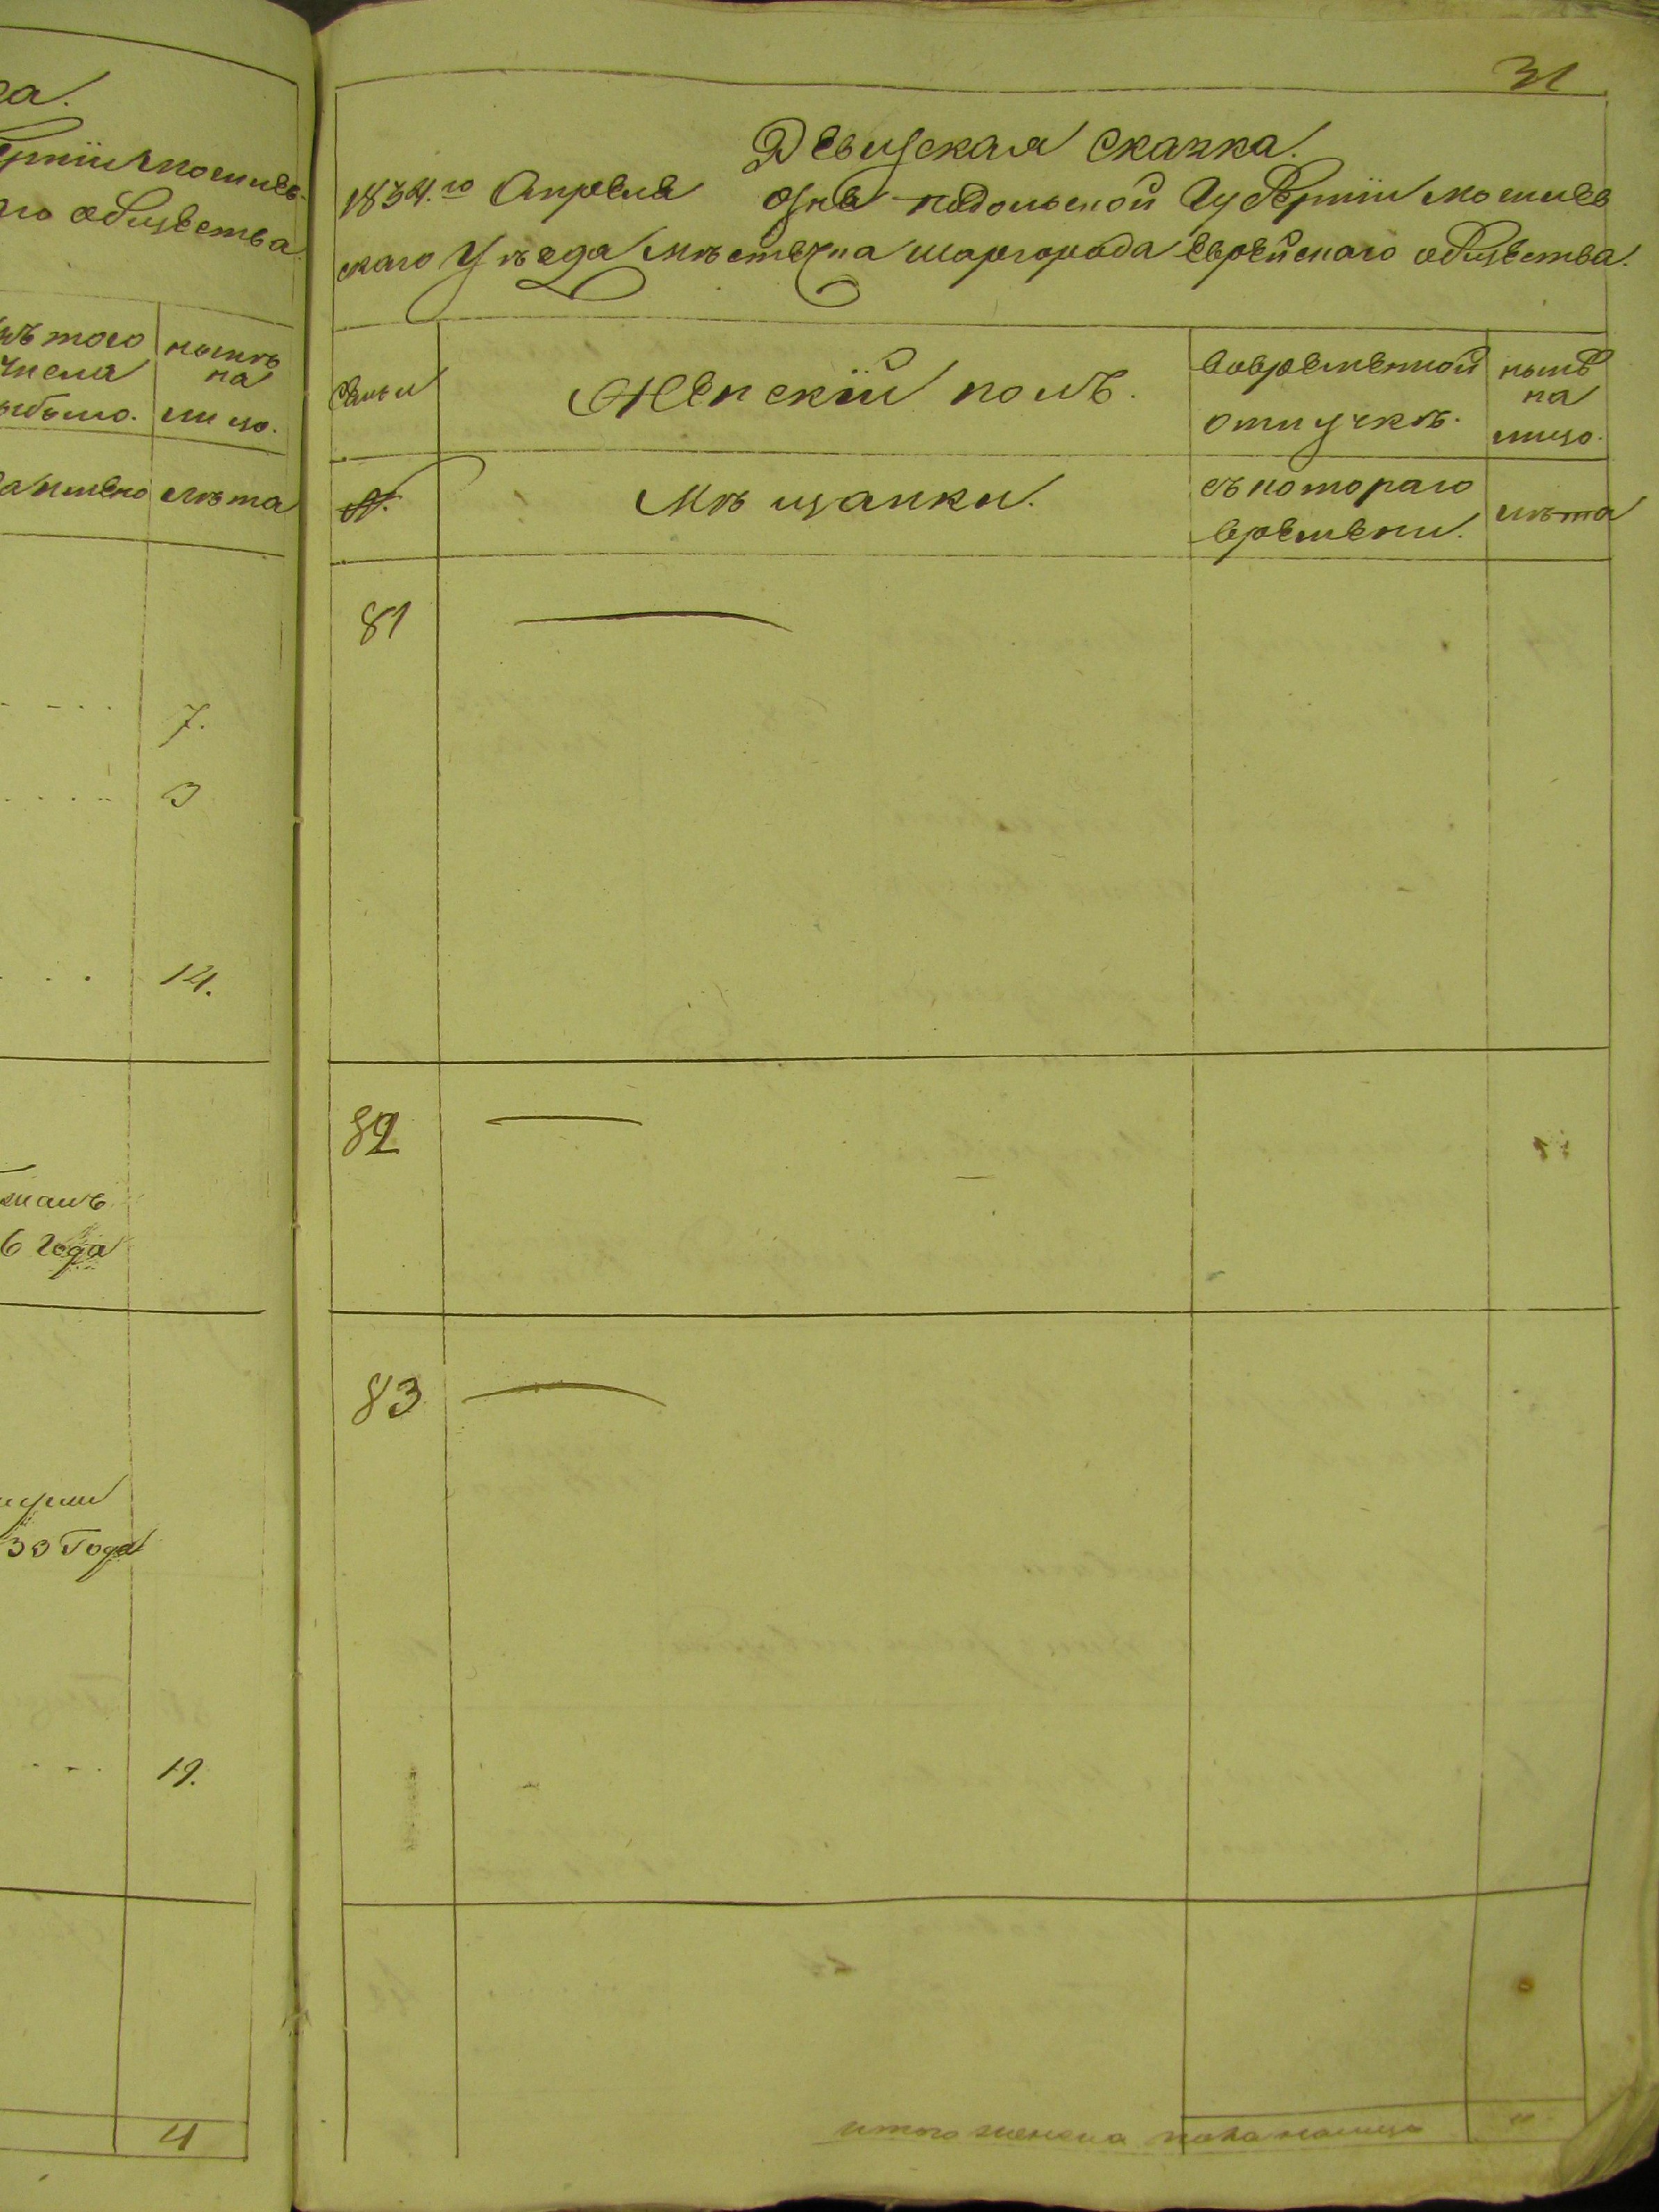 да.
ернїи могилев
го общества
изъ того
числа
выбыло.
нынѣ
на
лицо.
лѣта
7.
3
14.
6 года
33 Года
19.
4
31
Ревизская сказка.
1834.го Апреля дня подольской Губернїи могилев
скаго Уѣзда мѣстечка шаргорода еврейскаго общества.
Семьи
Женскїй полъ.
вовременной
отлучкѣ.
нынѣ
на
лицо.
№.
Мѣщанки.
съ котораго
времени.
лѣта
81
82
83
итого женска пола налицо "